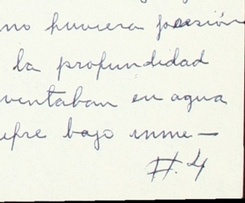 no huviera presión
la profundidad
ventaban en agua
epre bajo inme-
#.4